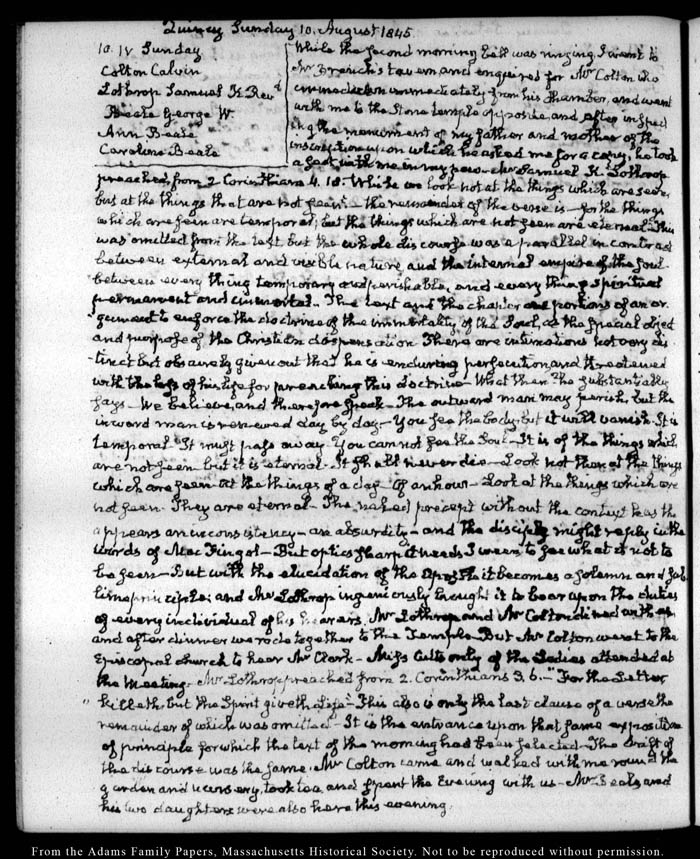 Quincy Sunday 10. August 1845.
10. IV Sunday
Colton Calvin
Lothrop Samuel K Revd
Beale George W.
Ann Beale
Caroline Beale
While the second morning bell was ringing I went to
Mr French's tavern and enquired for Mr Colton who
came down immediately from his chamber, and went
with me to the Stone temple opposite, and after inspect
ing the monument of my father and mother of the
inscription upon which he asked me for a copy, he took
a seat with me in my pew. Mr Samuel K. Lothrop
preached from 2 Corinthians 4. 18. While we look not at the things which are seen,
but at the things that are not seen: – the remainder of the verse is – for the things
which are seen are temporal; but the things which are not seen are eternal. This
was omitted from the text but the whole discourse was a parallel in contrast
between external and visible nature, and the internal empire of the soul.
between every thing temporary and perishable, and every thing spiritual
permanent and immortal. The text and the chapter are portions of an ar
gument to enforce the doctrine of the immortality of the Soul, as the special object
and purpose of the Christian dispensation There are intimations not very dis
tinct but obscurely given out that he is enduring persecution and threatened
with the loss of his life for preaching this doctrine – What then he substantially
says – We believe, and therefore speak – The outward man may perish, but the
inward man is renewed day by day – You see the body but it will vanish. It is
temporal. It must pass away. You cannot see the Soul – It is of the things which
are not seen but it is eternal. It shall never die – Look not then at the things
which are seen – at the things of a day – Of an hour – Look at the things which are
not seen. They are eternal – The naked precept without the context has the
appears an inconsistency – an absurdity – and the disciple might reply in the
words of Mac Fingal – But optics sharp it needs I ween to see what is not to
be seen – But with the elucidation of the Apostle it becomes a solemn and sub
lime principle; and Mr Lothrop ingeniously brought it to bear upon the duties
of every individual of his hearers. Mr Lothrop and Mr Colton dined with us
and after dinner we rode together to the Temple But Mr Colton went to the
Episcopal church to hear Mr Clark – Miss Cutts only of the Ladies attended at
the Meeting. Mr Lothrop preached from 2. Corinthians 3. 6. – For the Letter
killeth, but the Spirit giveth Life – This also is only the last clause of a verse the
remainder of which was omitted – It is the entrance upon that same exposition
of principle for which the text of the morning had been selected – The drift of
the discourse was the same. Mr Colton came and walked with me round the
garden and nursery, took tea, and spent the Evening with us – Mr Beale and
his two daughters were also here this evening.
From the Adams Family Papers, Massachusetts Historical Society. Not to be reproduced without permission.